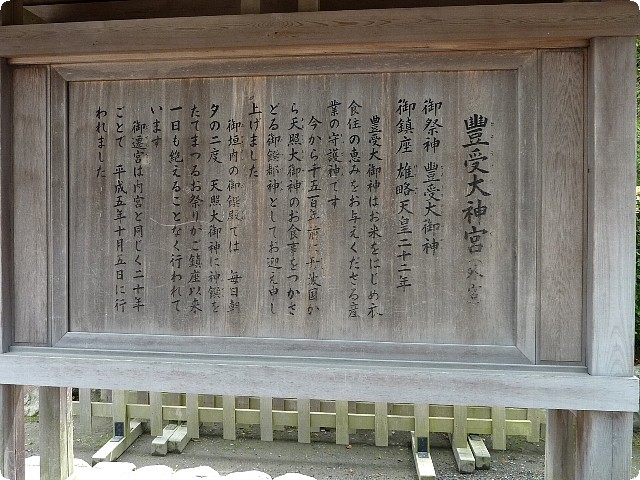 豊受大神宮(外宮)
御祭神 豊受大御神
御鎮座 雄略天皇二十二年
豊受大御神はお米をはじめ衣
食住の恵みをお与えくださる産
業の守護神です
今から千五百年前に丹波国か
ら天照大御神のお食事をつかさ
どる御饌都神としてお迎え申し
上げました
御垣内の御饌殿では 毎日朝
夕の二度 天照大御神に神饌を
たてまつるお祭りがご鎮座以来
一日も絶えることなく行われて
います
御遷宮は内宮と同じく二十年
ごとで 平成五年十月五日に行
われました